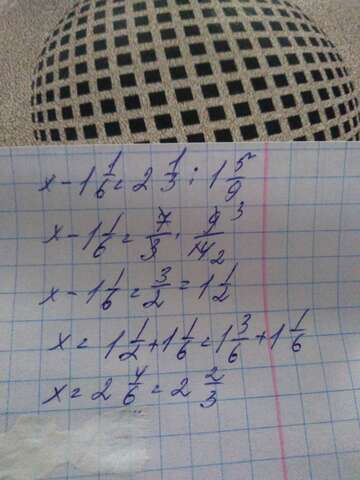 x - 1 1/6 = 2 1/3 : 1 5/9
x - 1 1/6 = 7/3 · 9 3/14 2
x - 1 1/6 = 3/2 = 1 1/2
x = 1 1/2 + 1 1/6 = 1 3/6 + 1 1/6
x = 2 4/6 = 2 2/3